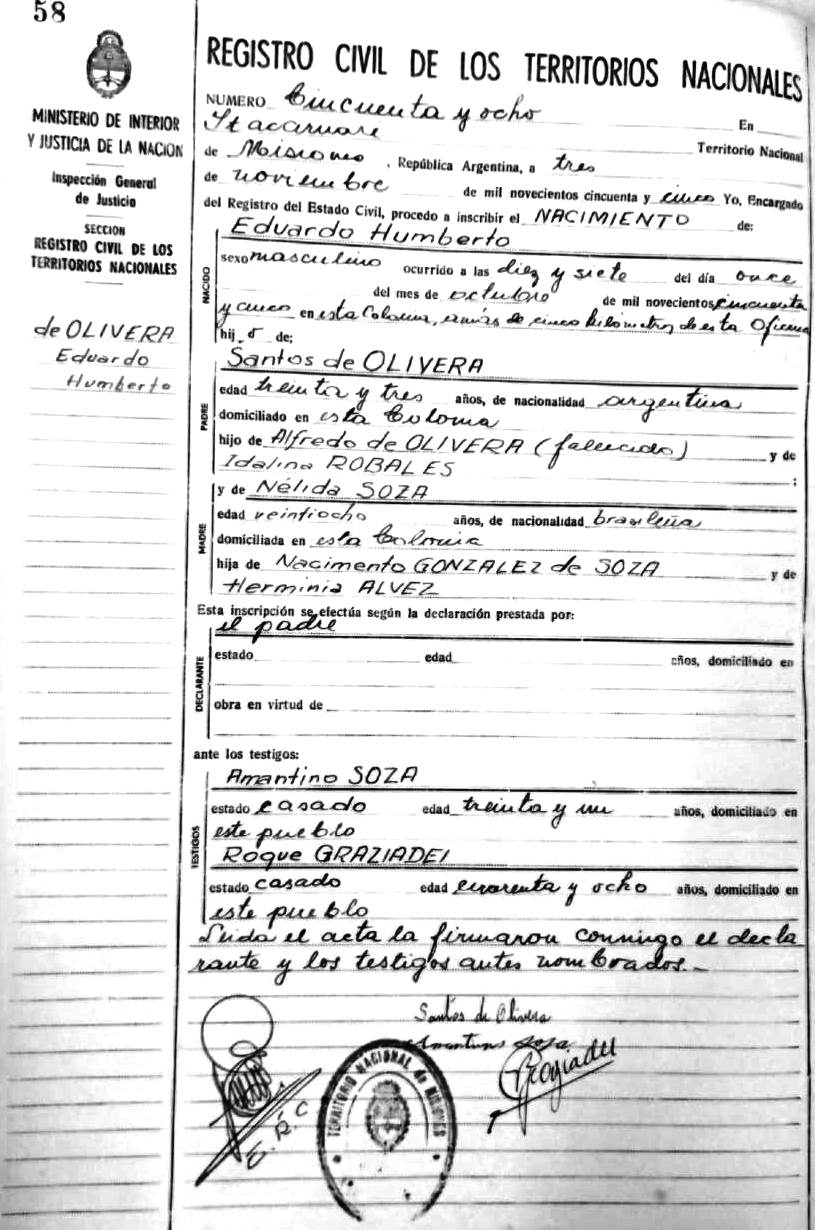 58
MINISTERIO DE INTERIOR
Y JUSTICIA DE LA NACION
Inspección General
de Justicia
SECCION
REGISTRO CIVIL DE LOS
TERRITORIOS NACIONALES
de OLIVERA
Eduardo
Humberto
REGISTRO CIVIL DE LOS TERRITORIOS NACIONALES
NUMERO Cincuenta y ocho En
Itacaruare Territorio Nacional
de Misiones, República Argentina, a tres
de noviembre de mil novecientos cincuenta y cinco Yo, Encargado
del Registro del Estado Civil, procedo a inscribir el NACIMIENTO de:
NACIDO
Eduardo Humberto
sexo masculino ocurrido a las diez y siete del día once
del mes de octubre de mil novecientos cincuenta
y cinco en esta Colonia, a más de cinco kilometros de esta Oficina
hij o de:
PADRE
Santos de OLIVERA
edad treinta y tres años, de nacionalidad argentina
domiciliado en esta Colonia
hijo de Alfredo de OLIVERA (fallecido) y de
Idalina ROBALES ;
MADRE
y de Nélida SOZA
edad veintiocho años, de nacionalidad brasileña
domiciliada en esta Colonia
hija de Nacimento GONZALEZ de SOZA y de
Herminia ALVEZ
Esta inscripción se efectúa según la declaración prestada por:
DECLARANTE
el padre
estado edad años, domiciliado en
obra en virtud de
ante los testigos:
TESTIGOS
Amantino SOZA
estado casado edad treinta y un años, domiciliado en
este pueblo
Roque GRAZIADEI
estado casado edad cuarenta y ocho años, domiciliado en
este pueblo
Leida el acta la firmaron conmigo el decla
rante y los testigos antes nombrados.-
Santos de Olivera
Amantino Soza
Graziadei
E.R.C
TERRITORIO NACIONAL de MISIONES